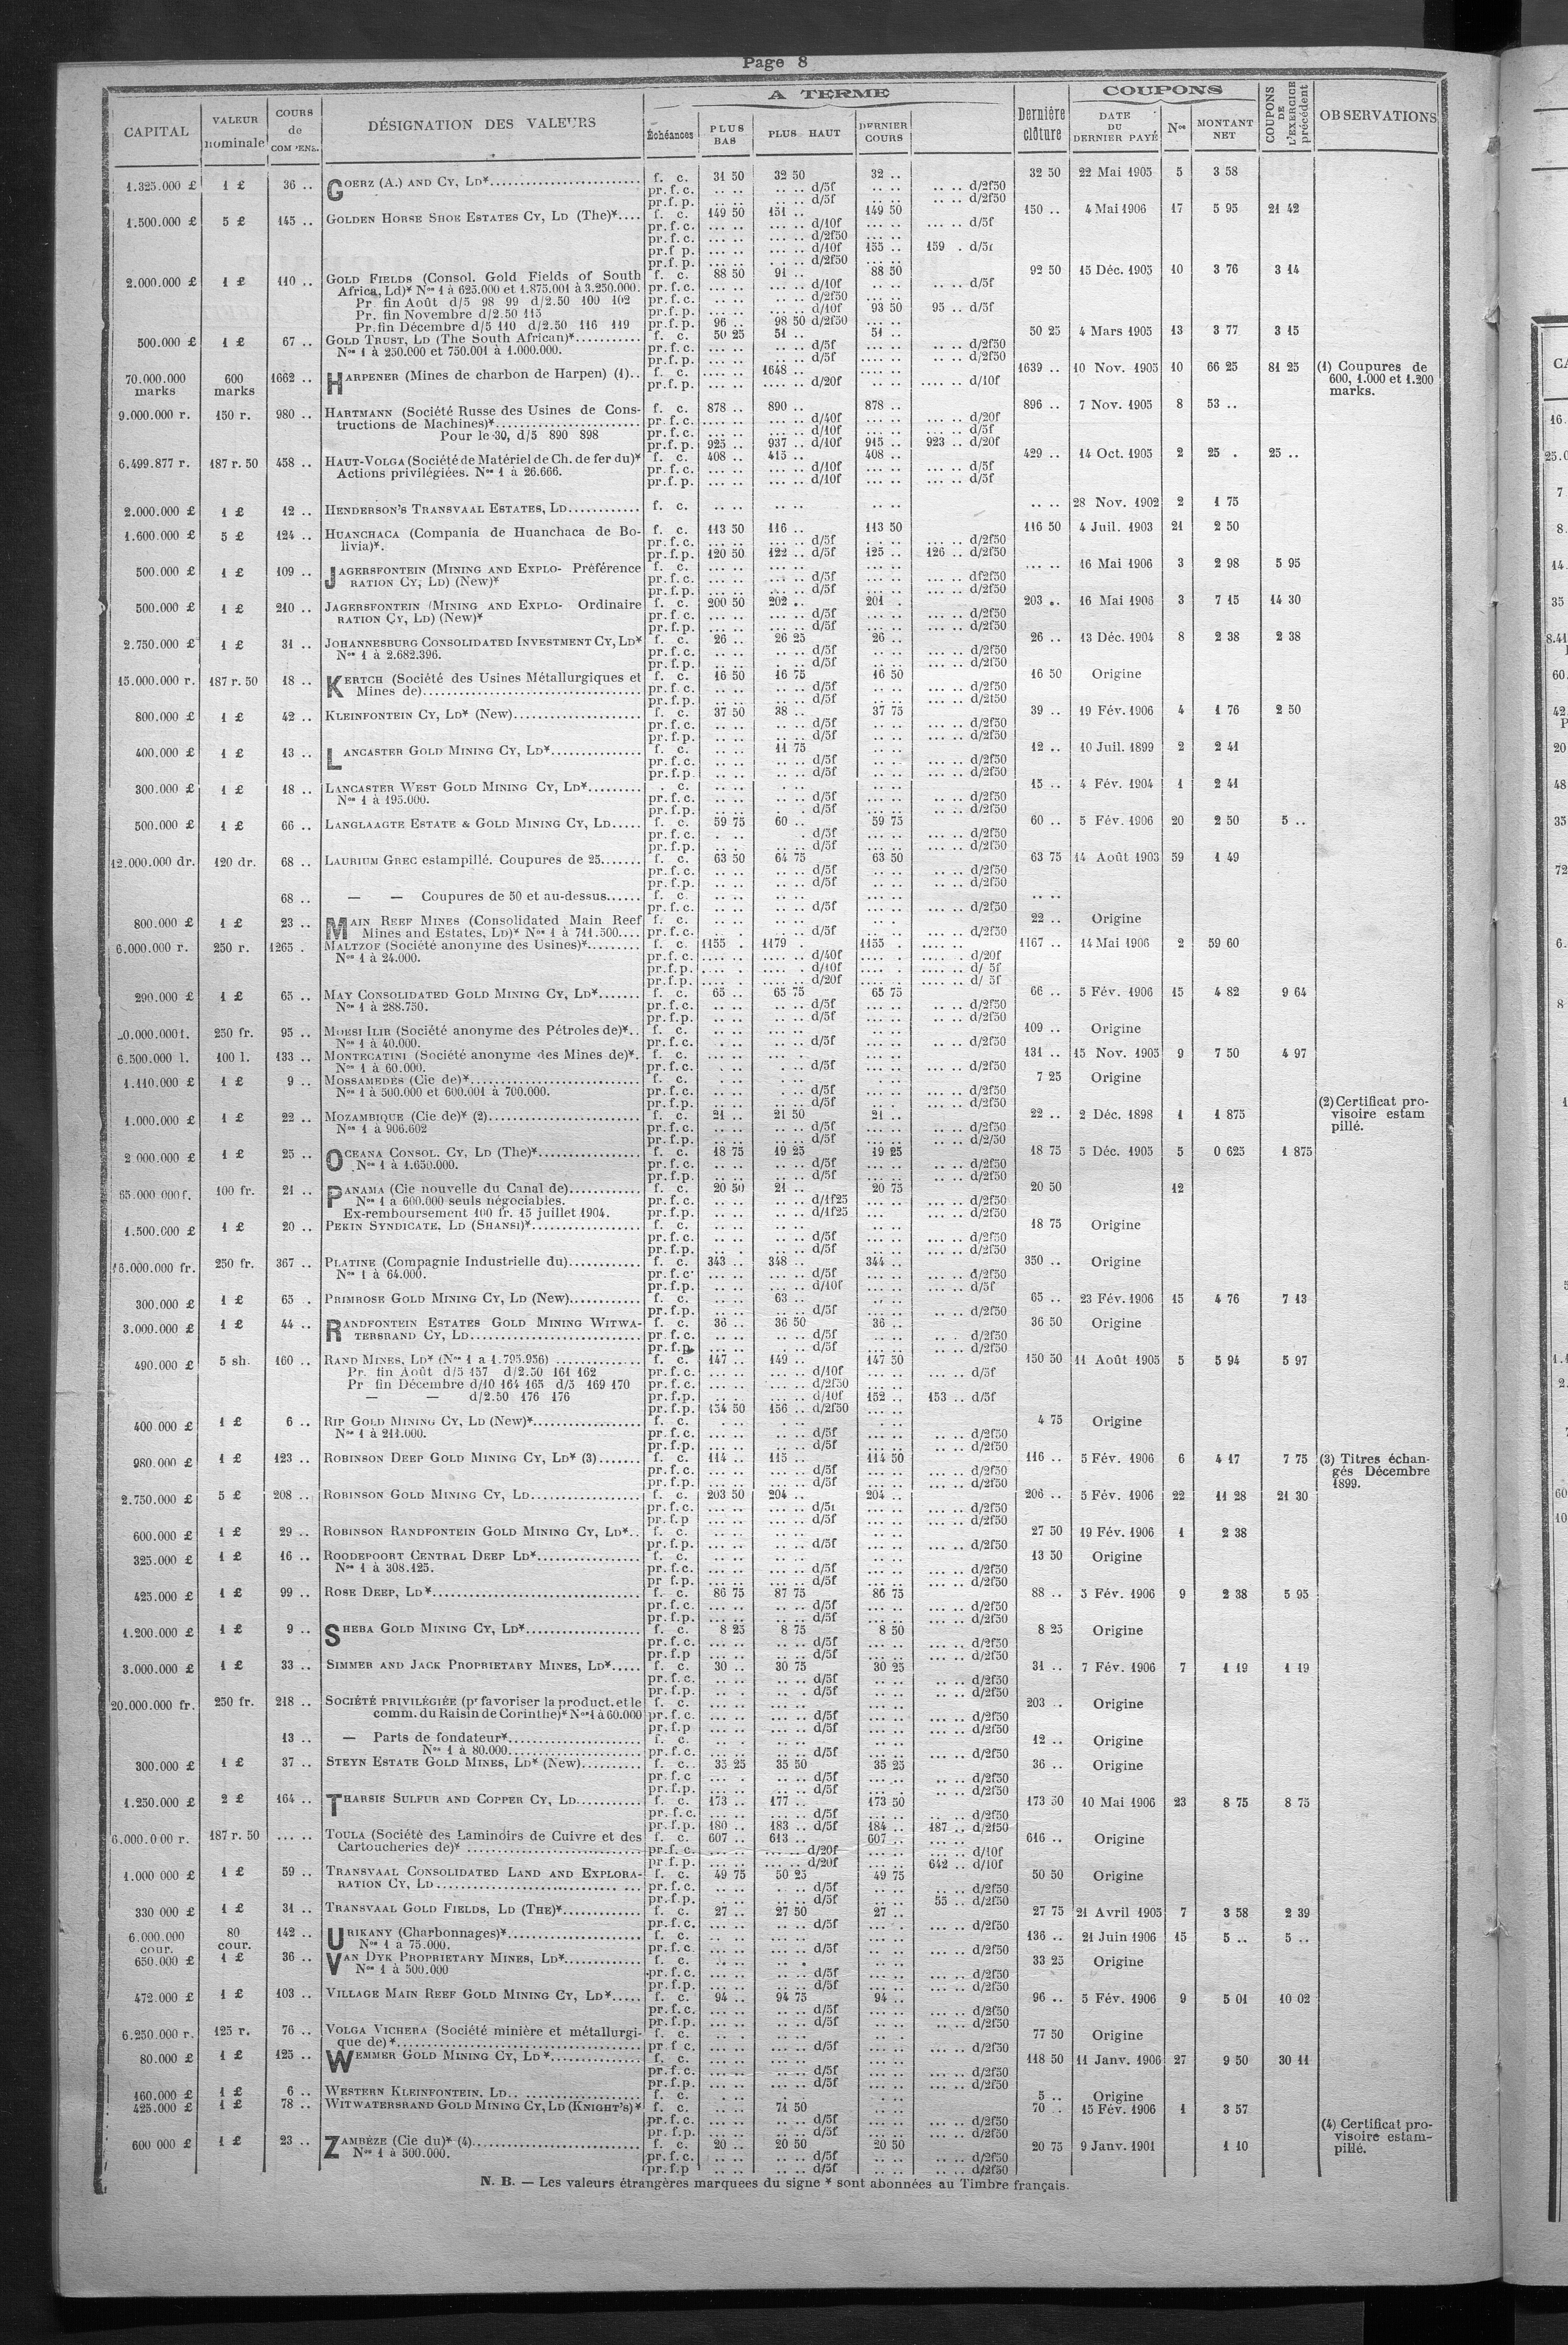 Page 8
CAPITAL | VALEUR nominale | COURS de COMPENS. | DÉSIGNATION DES VALEURS | A TERME: Échéances | PLUS BAS | PLUS HAUT | DERNIER COURS | Dernière clôture | COUPONS: DATE DU DERNIER PAYÉ | Nos | MONTANT NET | COUPONS DE L'EXERCICE précédent | OBSERVATIONS
1.325.000 £ | 1 £ | 36 .. | GOERZ (A.) AND CY, LD* | f. c. | 31 50 | 32 50 | 32 .. | 32 50 | 22 Mai 1905 | 5 | 3 58
pr. f. c. .. .. .. .. d/5f .. .. .. .. d/2f50
pr. f. p. .. .. .. .. d/5f .. .. .. .. d/2f50
1.500.000 £ | 5 £ | 145 .. | GOLDEN HORSE SHOE ESTATES CY, LD (The)* | f. c. | 149 50 | 151 .. | 149 50 | 150 .. | 4 Mai 1906 | 17 | 5 95 | 21 42
pr. f. c. ... .. ... .. d/10f ... .. ... .. d/5f
pr. f. c. ... .. ... .. d/2f50 ... ..
pr. f. p. ... .. ... .. d/10f 155 .. 159 . d/5f
pr. f. p. ... .. d/2f50 ... ..
2.000.000 £ | 1 £ | 110 .. | GOLD FIELDS (Consol. Gold Fields of South | f. c. | 88 50 | 91 .. | 88 50 | 92 50 | 15 Déc. 1905 | 10 | 3 76 | 3 14
Africa, Ld)* Nos 1 à 625.000 et 1.875.001 à 3.250.000. pr. f. c. d/10f d/5f
Pr. fin Août d/5 98 99 d/2.50 100 102 pr. f. c. d/2f50
Pr. fin Novembre d/2.50 115 pr. f. p. d/10f 93 50 95 .. d/5f
Pr. fin Décembre d/5 110 d/2.50 116 119 pr. f. p. 96 .. 98 50 d/2f50
500.000 £ | 1 £ | 67 .. | GOLD TRUST, LD (The South African)* | f. c. | 50 25 | 51 .. | 51 .. | 50 25 | 4 Mars 1905 | 13 | 3 77 | 3 15
Nos 1 à 250.000 et 750.001 à 1.000.000. pr. f. c. d/5f d/2f50
pr. f. p. d/5f d/2f50
70.000.000 marks | 600 marks | 1662 .. | HARPENER (Mines de charbon de Harpen) (1).. | f. c. | .... .. | 1648 .. | 1639 .. | 10 Nov. 1905 | 10 | 66 25 | 81 25 | (1) Coupures de 600, 1.000 et 1.200 marks.
pr. f. p. d/20f d/10f
9.000.000 r. | 150 r. | 980 .. | HARTMANN (Société Russe des Usines de Cons- | f. c. | 878 .. | 890 .. | 878 .. | 896 .. | 7 Nov. 1905 | 8 | 53 ..
tructions de Machines)* pr. f. c. d/40f d/20f
Pour le 30, d/5 890 898 pr. f. c. d/10f d/5f
pr. f. p. 925 .. 937 .. d/10f 915 .. 923 .. d/20f
6.499.877 r. | 187 r. 50 | 458 .. | HAUT-VOLGA (Société de Matériel de Ch. de fer du)* | f. c. | 408 .. | 415 .. | 408 .. | 429 .. | 14 Oct. 1905 | 2 | 25 . | 25 ..
Actions privilégiées. Nos 1 à 26.666. pr. f. c. d/10f d/5f
pr. f. p. d/10f d/5f
2.000.000 £ | 1 £ | 12 .. | HENDERSON'S TRANSVAAL ESTATES, LD | f. c. | .. .. | .. .. | .. .. | .. .. | 28 Nov. 1902 | 2 | 1 75
1.600.000 £ | 5 £ | 124 .. | HUANCHACA (Compania de Huanchaca de Bo- | f. c. | 113 50 | 116 .. | 113 50 | 116 50 | 4 Juil. 1903 | 21 | 2 50
livia)*. pr. f. c. d/5f d/2f50
pr. f. p. 120 50 122 .. d/5f 125 .. 126 .. d/2f50
500.000 £ | 1 £ | 109 .. | JAGERSFONTEIN (MINING AND EXPLO- Préférence | f. c. | ... .. | 16 Mai 1906 | 3 | 2 98 | 5 95
RATION CY, LD) (New)* pr. f. c. d/5f df2f50
pr. f. p. d/5f d/2f50
500.000 £ | 1 £ | 210 .. | JAGERSFONTEIN (MINING AND EXPLO- Ordinaire | f. c. | 200 50 | 202 .. | 201 . | 203 .. | 16 Mai 1906 | 3 | 7 15 | 14 30
RATION CY, LD) (New)* pr. f. c. d/5f d/2f50
pr. f. p. d/5f d/2f50
2.750.000 £ | 1 £ | 31 .. | JOHANNESBURG CONSOLIDATED INVESTMENT CY, LD* | f. c. | 26 .. | 26 25 | 26 .. | 26 .. | 13 Déc. 1904 | 8 | 2 38 | 2 38
Nos 1 à 2.682.396. pr. f. c. d/5f d/2f50
pr. f. p. d/5f d/2f50
15.000.000 r. | 187 r. 50 | 18 .. | KERTCH (Société des Usines Métallurgiques et | f. c. | 16 50 | 16 75 | 16 50 | 16 50 | Origine
Mines de) pr. f. c. d/5f d/2f50
pr. f. p. d/5f d/2f50
800.000 £ | 1 £ | 42 .. | KLEINFONTEIN CY, LD* (New) | f. c. | 37 50 | 38 .. | 37 75 | 39 .. | 19 Fév. 1906 | 4 | 1 76 | 2 50
pr. f. c. d/5f d/2f50
pr. f. p. d/5f d/2f50
400.000 £ | 1 £ | 13 .. | LANCASTER GOLD MINING CY, LD* | f. c. | .. .. | 11 75 | .. .. | 12 .. | 10 Juil. 1899 | 2 | 2 41
pr. f. c. d/5f d/2f50
pr. f. p. d/5f d/2f50
300.000 £ | 1 £ | 18 .. | LANCASTER WEST GOLD MINING CY, LD* | . c. | 15 .. | 4 Fév. 1904 | 1 | 2 41
Nos 1 à 195.000. pr. f. c. d/5f d/2f50
pr. f. p. d/5f d/2f50
500.000 £ | 1 £ | 66 .. | LANGLAAGTE ESTATE & GOLD MINING CY, LD | f. c. | 59 75 | 60 .. | 59 75 | 60 .. | 5 Fév. 1906 | 20 | 2 50 | 5 ..
pr. f. c. d/5f d/2f50
pr. f. p. d/5f d/2f50
12.000.000 dr. | 120 dr. | 68 .. | LAURIUM GREC estampillé. Coupures de 25 | f. c. | 63 50 | 64 75 | 63 50 | 63 75 | 14 Août 1903 | 59 | 1 49
pr. f. c. d/5f d/2f50
pr. f. p. d/5f d/2f50
68 .. | — — Coupures de 50 et au-dessus | f. c. | .. ..
pr. f. c. d/5f d/2f50
800.000 £ | 1 £ | 23 .. | MAIN REEF MINES (Consolidated Main Reef | f. c. | 22 .. | Origine
Mines and Estates, LD)* Nos 1 à 711.500 pr. f. c. d/5f d/2f50
6.000.000 r. | 250 r. | 1265 . | MALTZOF (Société anonyme des Usines)* | f. c. | 1155 . | 1179 . | 1155 . | 1167 .. | 14 Mai 1906 | 2 | 59 60
Nos 1 à 24.000. pr. f. c. d/40f d/20f
pr. f. p. d/10f d/ 5f
pr. f. p. d/20f d/ 5f
290.000 £ | 1 £ | 65 .. | MAY CONSOLIDATED GOLD MINING CY, LD* | f. c. | 65 .. | 65 75 | 65 75 | 66 .. | 5 Fév. 1906 | 15 | 4 82 | 9 64
Nos 1 à 288.750. pr. f. c. d/5f d/2f50
pr. f. p. d/5f d/2f50
0.000.000 f. | 250 fr. | 95 .. | MOESI ILIR (Société anonyme des Pétroles de)* | f. c. | 109 .. | Origine
Nos 1 à 40.000. pr. f. c. d/5f d/2f50
6.500.000 l. | 100 l. | 133 .. | MONTECATINI (Société anonyme des Mines de)* | f. c. | 131 .. | 15 Nov. 1905 | 9 | 7 50 | 4 97
Nos 1 à 60.000. pr. f. c. d/5f d/2f50
1.110.000 £ | 1 £ | 9 .. | MOSSAMEDÈS (Cie de)* | f. c. | 7 25 | Origine
Nos 1 à 500.000 et 600.001 à 700.000. pr. f. c. d/5f d/2f50
pr. f. p. d/5f d/2f50
1.000.000 £ | 1 £ | 22 .. | MOZAMBIQUE (Cie de)* (2) | f. c. | 21 .. | 21 50 | 21 .. | 22 .. | 2 Déc. 1898 | 1 | 1 875 | (2) Certificat provisoire estampillé.
Nos 1 à 906.602 pr. f. c. d/5f d/2f50
pr. f. p. d/5f d/2/50
2.000.000 £ | 1 £ | 25 .. | OCEANA CONSOL. CY, LD (The)* | f. c. | 18 75 | 19 25 | 19 25 | 18 75 | 5 Déc. 1905 | 5 | 0 625 | 1 875
Nos 1 à 1.650.000. pr. f. c. d/5f d/2f50
pr. f. p. d/5f d/2f50
65.000.000 f. | 100 fr. | 21 .. | PANAMA (Cie nouvelle du Canal de) | f. c. | 20 50 | 21 .. | 20 75 | 20 50 | 12
Nos 1 à 600.000 seuls négociables. pr. f. c. d/1f25 d/2f50
Ex-remboursement 100 fr. 15 juillet 1904. pr. f. p. d/1f25 d/2f50
1.500.000 £ | 1 £ | 20 .. | PEKIN SYNDICATE, LD (SHANSI)* | f. c. | 18 75 | Origine
pr. f. c. d/5f d/2f50
pr. f. p. d/5f d/2f50
16.000.000 fr. | 250 fr. | 367 .. | PLATINE (Compagnie Industrielle du) | f. c. | 343 .. | 348 .. | 344 .. | 350 .. | Origine
Nos 1 à 64.000. pr. f. c. d/5f d/2f50
pr. f. p. d/10f d/5f
300.000 £ | 1 £ | 65 . | PRIMROSE GOLD MINING CY, LD (New) | f. c. | .. .. | 63 .. | .. .. | 65 .. | 23 Fév. 1906 | 15 | 4 76 | 7 13
pr. f. p. d/5f d/2f50
3.000.000 £ | 1 £ | 44 .. | RANDFONTEIN ESTATES GOLD MINING WITWA- | f. c. | 36 .. | 36 50 | 36 .. | 36 50 | Origine
TERSRAND CY, LD pr. f. c. d/5f d/2f50
pr. f. p. d/5f d/2f50
490.000 £ | 5 sh. | 160 .. | RAND MINES, LD* (Nos 1 a 1.795.956) | f. c. | 147 .. | 149 .. | 147 50 | 150 50 | 11 Août 1905 | 5 | 5 94 | 5 97
Pr. fin Août d/5 157 d/2.50 161 162 pr. f. c. d/10f d/5f
Pr fin Décembre d/10 164 165 d/5 169 170 pr. f. c. d/2f50
— — d/2.50 176 176 pr. f. p. d/10f 152 .. 153 .. d/5f
pr. f. p. 154 50 156 .. d/2f50
400.000 £ | 1 £ | 6 .. | RIP GOLD MINING CY, LD (New)* | f. c. | 4 75 | Origine
Nos 1 à 211.000. pr. f. c. d/5f d/2f50
pr. f. p. d/5f d/2f50
980.000 £ | 1 £ | 123 .. | ROBINSON DEEP GOLD MINING CY, LD* (3) | f. c. | 114 .. | 115 .. | 114 50 | 116 .. | 5 Fév. 1906 | 6 | 4 17 | 7 75 | (3) Titres échangés Décembre 1899.
pr. f. c. d/5f d/2f50
pr. f. p. d/5f d/2f50
2.750.000 £ | 5 £ | 208 .. | ROBINSON GOLD MINING CY, LD | f. c. | 203 50 | 204 .. | 204 .. | 206 .. | 5 Fév. 1906 | 22 | 11 28 | 21 30
pr. f. c. d/5f d/2f50
pr. f. p d/5f d/2f50
600.000 £ | 1 £ | 29 .. | ROBINSON RANDFONTEIN GOLD MINING CY, LD* | f. c. | 27 50 | 19 Fév. 1906 | 1 | 2 38
pr. f. p. d/5f d/2f50
325.000 £ | 1 £ | 16 .. | ROODEPOORT CENTRAL DEEP LD* | f. c. | 13 50 | Origine
Nos 1 à 308.125. pr. f. c. d/5f d/2f50
pr f. p. d/5f d/2f50
425.000 £ | 1 £ | 99 .. | ROSE DEEP, LD* | f. c. | 86 75 | 87 75 | 86 75 | 88 .. | 5 Fév. 1906 | 9 | 2 38 | 5 95
pr. f. c. d/5f d/2f50
pr. f. p. d/5f d/2f50
1.200.000 £ | 1 £ | 9 .. | SHEBA GOLD MINING CY, LD* | f. c. | 8 25 | 8 75 | 8 50 | 8 25 | Origine
pr. f. c. d/5f d/2f50
pr. f. p d/5f d/2f50
3.000.000 £ | 1 £ | 33 .. | SIMMER AND JACK PROPRIETARY MINES, LD* | f. c. | 30 .. | 30 75 | 30 25 | 31 .. | 7 Fév. 1906 | 7 | 1 19 | 1 19
pr. f. c. d/5f d/2f50
pr. f. p. d/5f d/2f50
20.000.000 fr. | 250 fr. | 218 .. | SOCIÉTÉ PRIVILÉGIÉE (pr favoriser la product. et le | f. c. | 203 .. | Origine
comm. du Raisin de Corinthe)* Nos 1 à 60.000 pr. f. c. d/5f d/2f50
pr. f. p d/5f d/2f50
13 .. | — Parts de fondateur* | f. c. | 12 .. | Origine
Nos 1 à 80.000 pr. f. c. d/5f d/2f50
300.000 £ | 1 £ | 37 .. | STEYN ESTATE GOLD MINES, LD* (New) | f. c. | 35 25 | 35 50 | 35 25 | 36 .. | Origine
pr. f. c d/5f d/2f50
pr. f. p. d/5f d/2f50
1.250.000 £ | 2 £ | 164 .. | THARSIS SULFUR AND COPPER CY, LD | f. c. | 173 .. | 177 .. | 173 50 | 173 50 | 10 Mai 1906 | 23 | 8 75 | 8 75
pr. f. c. d/5f d/2f50
pr. f. p. 180 .. 183 .. d/5f 184 .. 187 .. d/2f50
6.000.000 r. | 187 r. 50 | ... .. | TOULA (Société des Laminoirs de Cuivre et des | f. c. | 607 .. | 613 .. | 607 .. | 616 .. | Origine
Cartoucheries de)* pr. f. c. d/20f d/10f
pr. f. p. d/20f 642 .. d/10f
1.000 000 £ | 1 £ | 59 .. | TRANSVAAL CONSOLIDATED LAND AND EXPLORA- | f. c. | 49 75 | 50 25 | 49 75 | 50 50 | Origine
RATION CY, LD pr. f. c. d/5f d/2f50
pr. f. p. d/5f 55 .. d/2f50
330 000 £ | 1 £ | 31 .. | TRANSVAAL GOLD FIELDS, LD (THE)* | f. c. | 27 .. | 27 50 | 27 .. | 27 75 | 21 Avril 1905 | 7 | 3 58 | 2 39
pr. f. c. d/5f d/2f50
6.000.000 cour. | 80 cour. | 142 .. | URIKANY (Charbonnages)* | f. c. | 136 .. | 21 Juin 1906 | 15 | 5 .. | 5 ..
Nos 1 a 75.000. pr. f. c. d/5f d/2f50
650.000 £ | 1 £ | 36 .. | VAN DYK PROPRIETARY MINES, LD* | f. c. | 33 25 | Origine
Nos 1 à 500.000 pr. f. c. d/5f d/2f50
pr. f. p. d/5f d/2f50
472.000 £ | 1 £ | 103 .. | VILLAGE MAIN REEF GOLD MINING CY, LD* | f. c. | 94 .. | 94 75 | 94 .. | 96 .. | 5 Fév. 1906 | 9 | 5 01 | 10 02
pr. f. c. d/5f d/2f50
pr. f. p. d/5f d/2f50
6.250.000 r. | 125 r. | 76 .. | VOLGA VICHERA (Société minière et métallurgi- | f. c. | 77 50 | Origine
que de)* pr f c. d/5f d/2f50
80.000 £ | 1 £ | 125 .. | WEMMER GOLD MINING CY, LD* | f. c. | 118 50 | 11 Janv. 1906 | 27 | 9 50 | 30 11
pr. f. c. d/5f d/2f50
pr. f. p. d/5f d/2f50
160.000 £ | 1 £ | 6 .. | WESTERN KLEINFONTEIN, LD | f. c. | 5 .. | Origine
425.000 £ | 1 £ | 78 .. | WITWATERSRAND GOLD MINING CY, LD (KNIGHT'S)* | f. c. | .. .. | 71 50 | 70 .. | 15 Fév. 1906 | 1 | 3 57
pr. f. c. d/5f d/2f50
pr. f. p. d/5f d/2f50
600 000 £ | 1 £ | 23 .. | ZAMBÈZE (Cie du)* (4) | f. c. | 20 .. | 20 50 | 20 50 | 20 75 | 9 Janv. 1901 | 1 10 | (4) Certificat provisoire estampillé.
Nos 1 à 500.000. pr. f. c. d/5f d/2f50
pr. f. p d/5f d/2f50
N. B. — Les valeurs étrangères marquees du signe * sont abonnées au Timbre français.